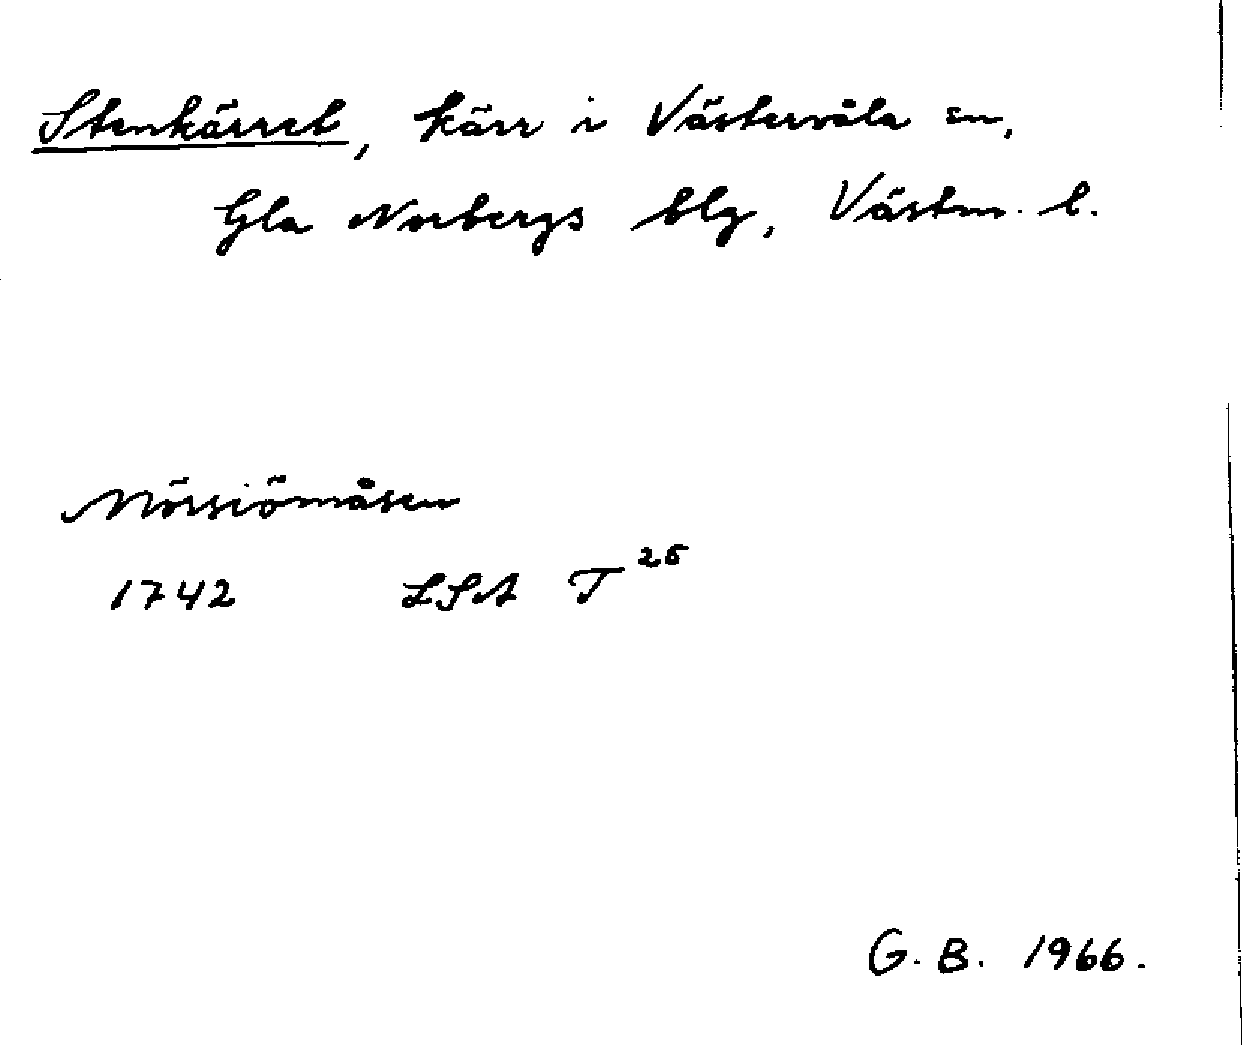 Stenkärret, kärr i Västervåla sn,
Gla Norbergs blg, Västm. l.
Mörsiömåsen
1742 LSA T²⁵
G. B. 1966.